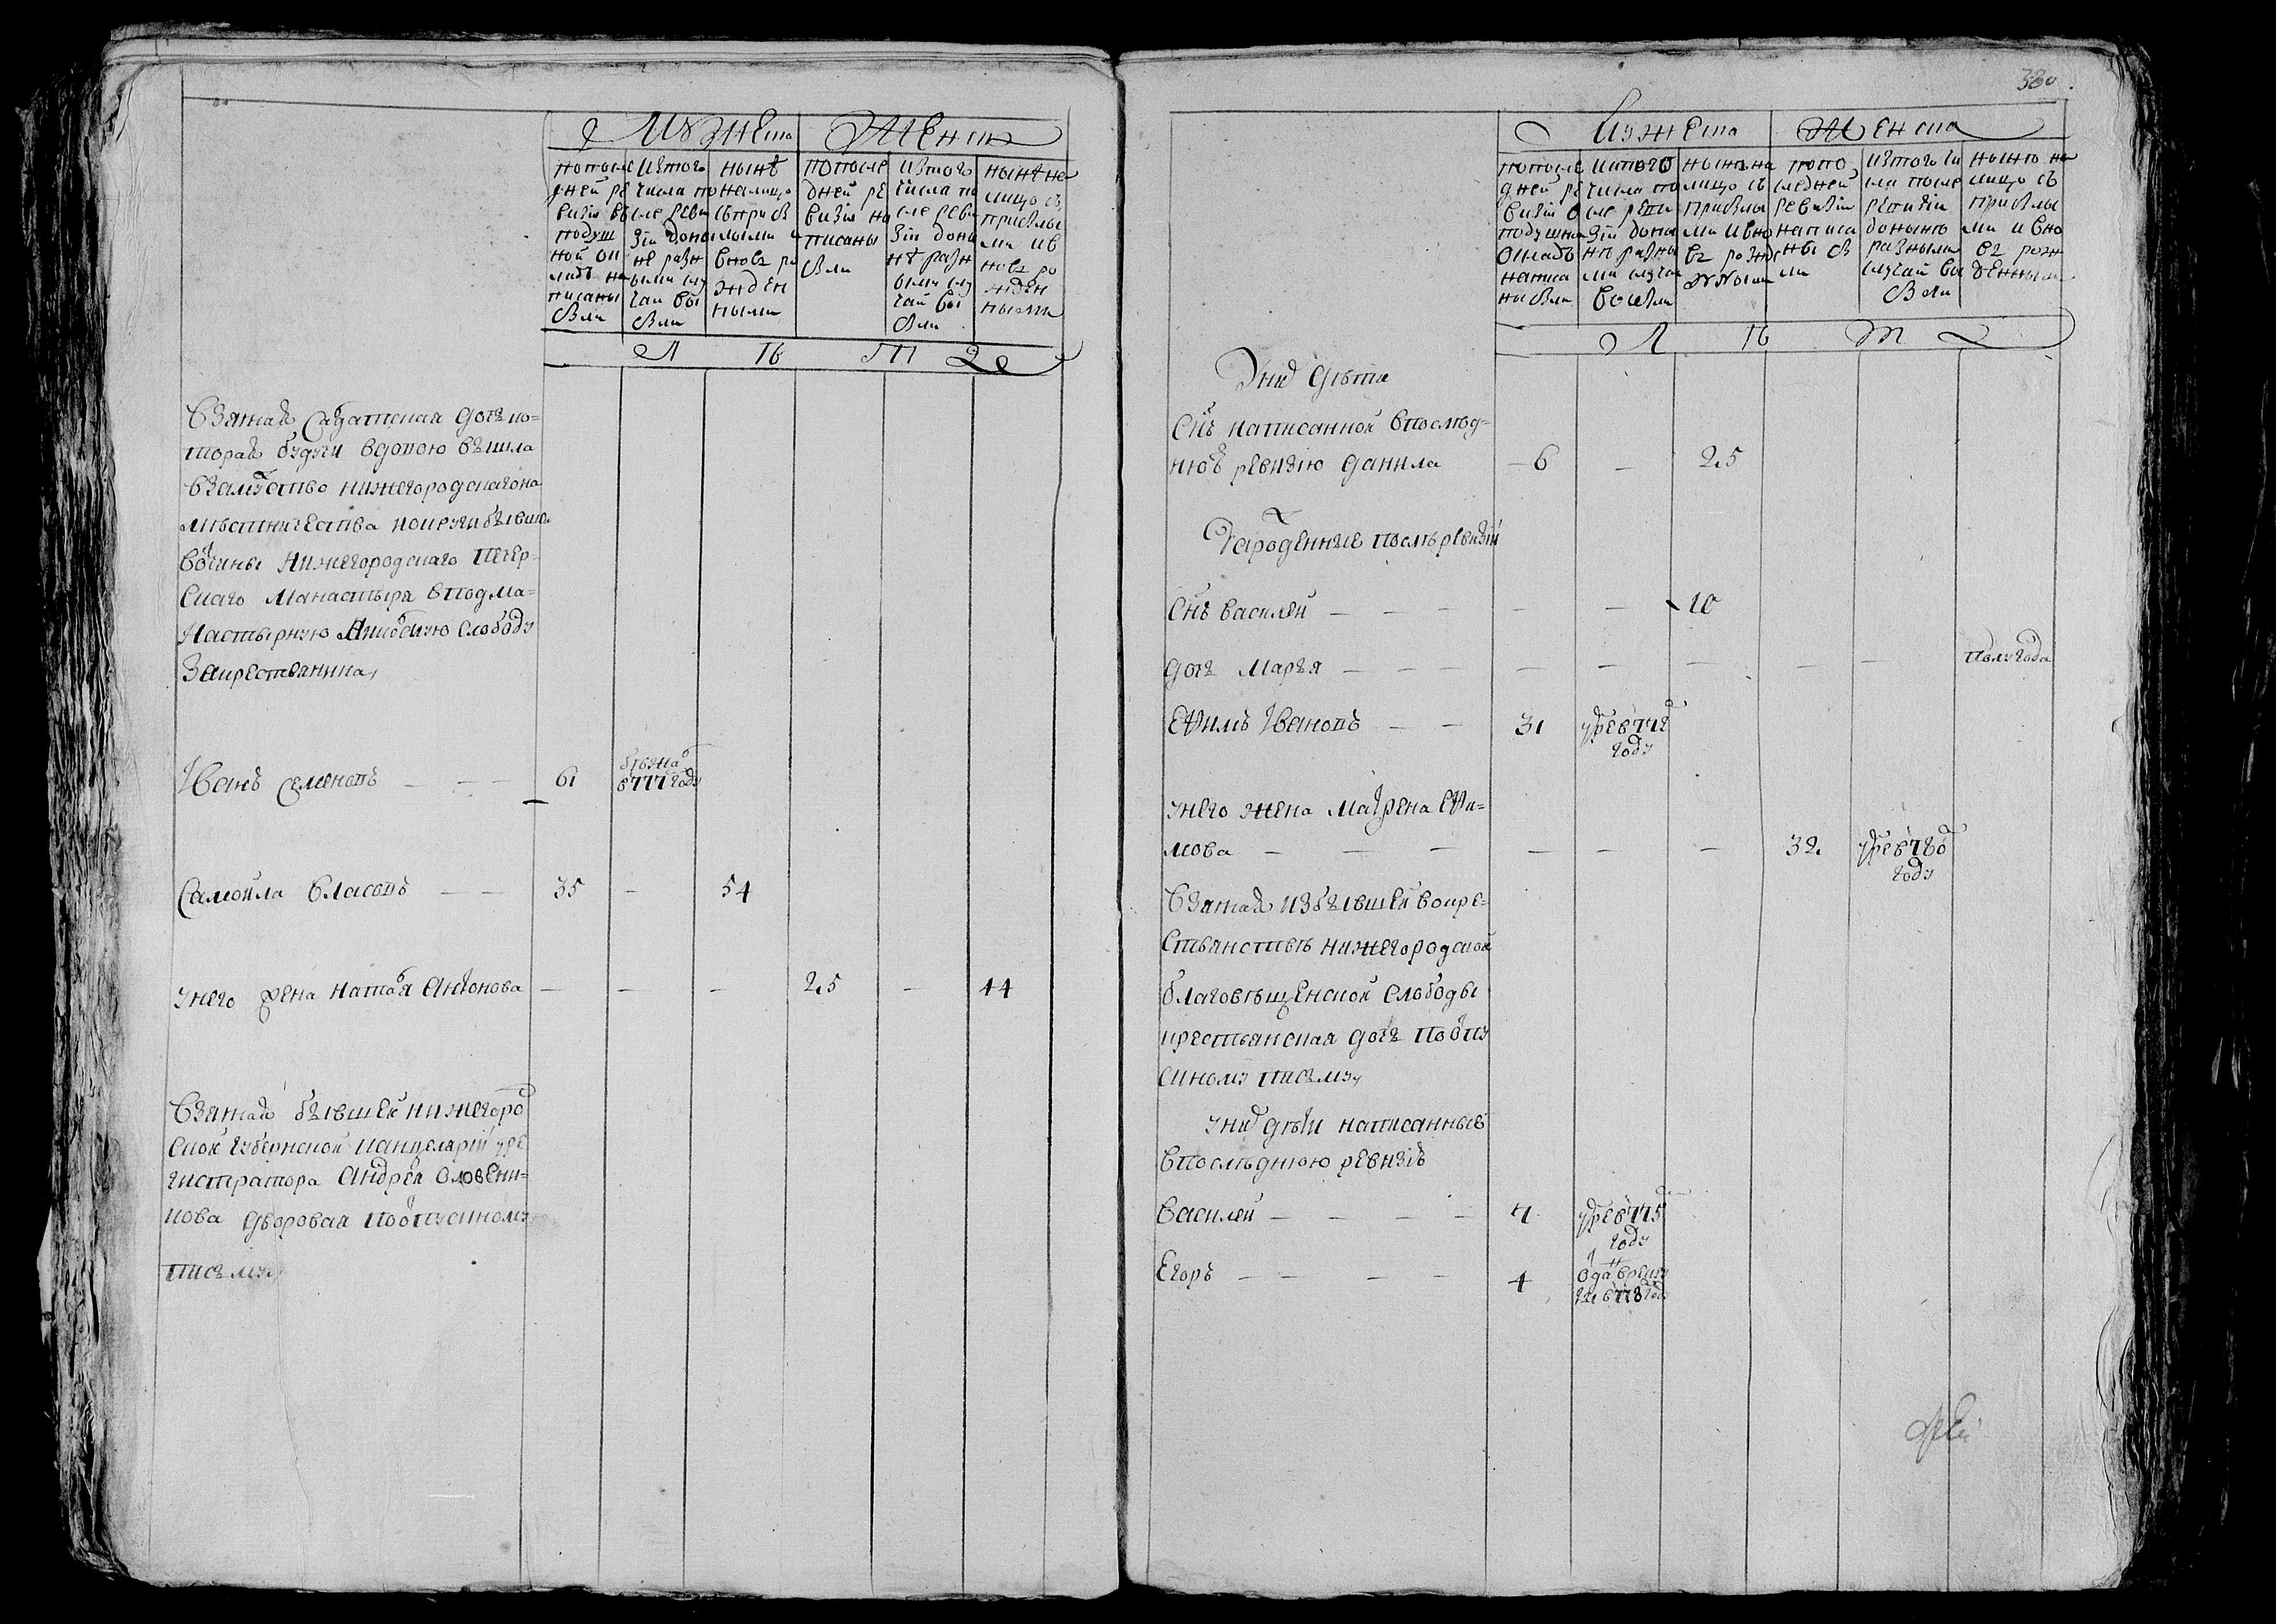 Мужеска Женска
по после
дней ре
визіи въ
подуш
ной ок
ладъ на
писаны
были
изтого
числа по
сле реви
зіи доны
не разн
ыми слу
чаи вы
были
нынѣ
налицо
съ прибы
лыми и
вновь ро
жден
ными
по после
дней ре
визіи на
писаны
были
изтого
числа по
сле реви
зіи доны
нѣ разн
ыми слу
чаи вы
были
нынѣ на
лицо съ
прибылы
ми и в
новь ро
жден
ными
Л Ѣ Т А
Взятая салдатская дочь ко=
торая будучи вдовою вышла
взамужство нижегородскаго на
мѣстничества покрузи бывшю
вочины Нижегородскаго Печер=
скаго Манастыря вподма=
настырную слободу
Закрестьянина,
Иванъ Семеновъ — — 61 бѣжа в 777 году
Самойла Власовъ — — 35 — 54
унего жена Наталя Антонова — — — 25 — 44
Взятая бывшей нижегород
ской губернской канцеляріи у ре
гистратора Андрея Словени=
нова дворовая поотпускному
писму,
380
Мужеска Женска
по после
дней ре
визіи в
подушно
окладъ
написа
ны были
изтого
числа по
сле реви
зіи доны
нѣ разны
ми случаи
выбыли
нынѣ на
лицо съ
прибылы
ми и вно
вь рожд
енными
по по
следней
ревизіи
написа
ны бы
ли
изтого чи
ла после
ревизіи
донынѣ
разными
случаи вы
были
нынѣ на
лицо съ
прибылы
ми и вно
вь рож
денными
Л Ѣ Т А
Уних дѣти
Снъ написанной впослѣд=
нюю ревизію Данила — 6 — 25
Рожденные послѣ ревизіи
Снъ Василей — — — — — 10
дочь Марья — — — — — — — — полугода
Ефимъ Ивановъ — — 31 умре в 772
году
унего жена Матрена Ефи=
мова — — — — — — 32 умре в 780
году
Взятая избывшей вокре=
стьянствѣ нижегородской
благовѣщенской слободы
крестьянская дочь поотпу
скному писму,
уних дѣти написанные
впослѣднюю ревизію
Василей — — — — 7 умре в 775
году
Егоръ — — — — 4 одан в рекру
ты в 778 году